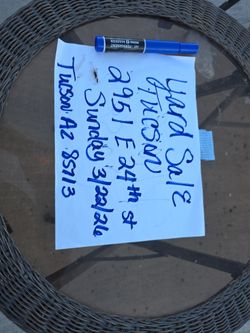 Yard Sale
TUCSON
2951 E 24th st
Sunday 3/22/26
Tucson AZ 85713